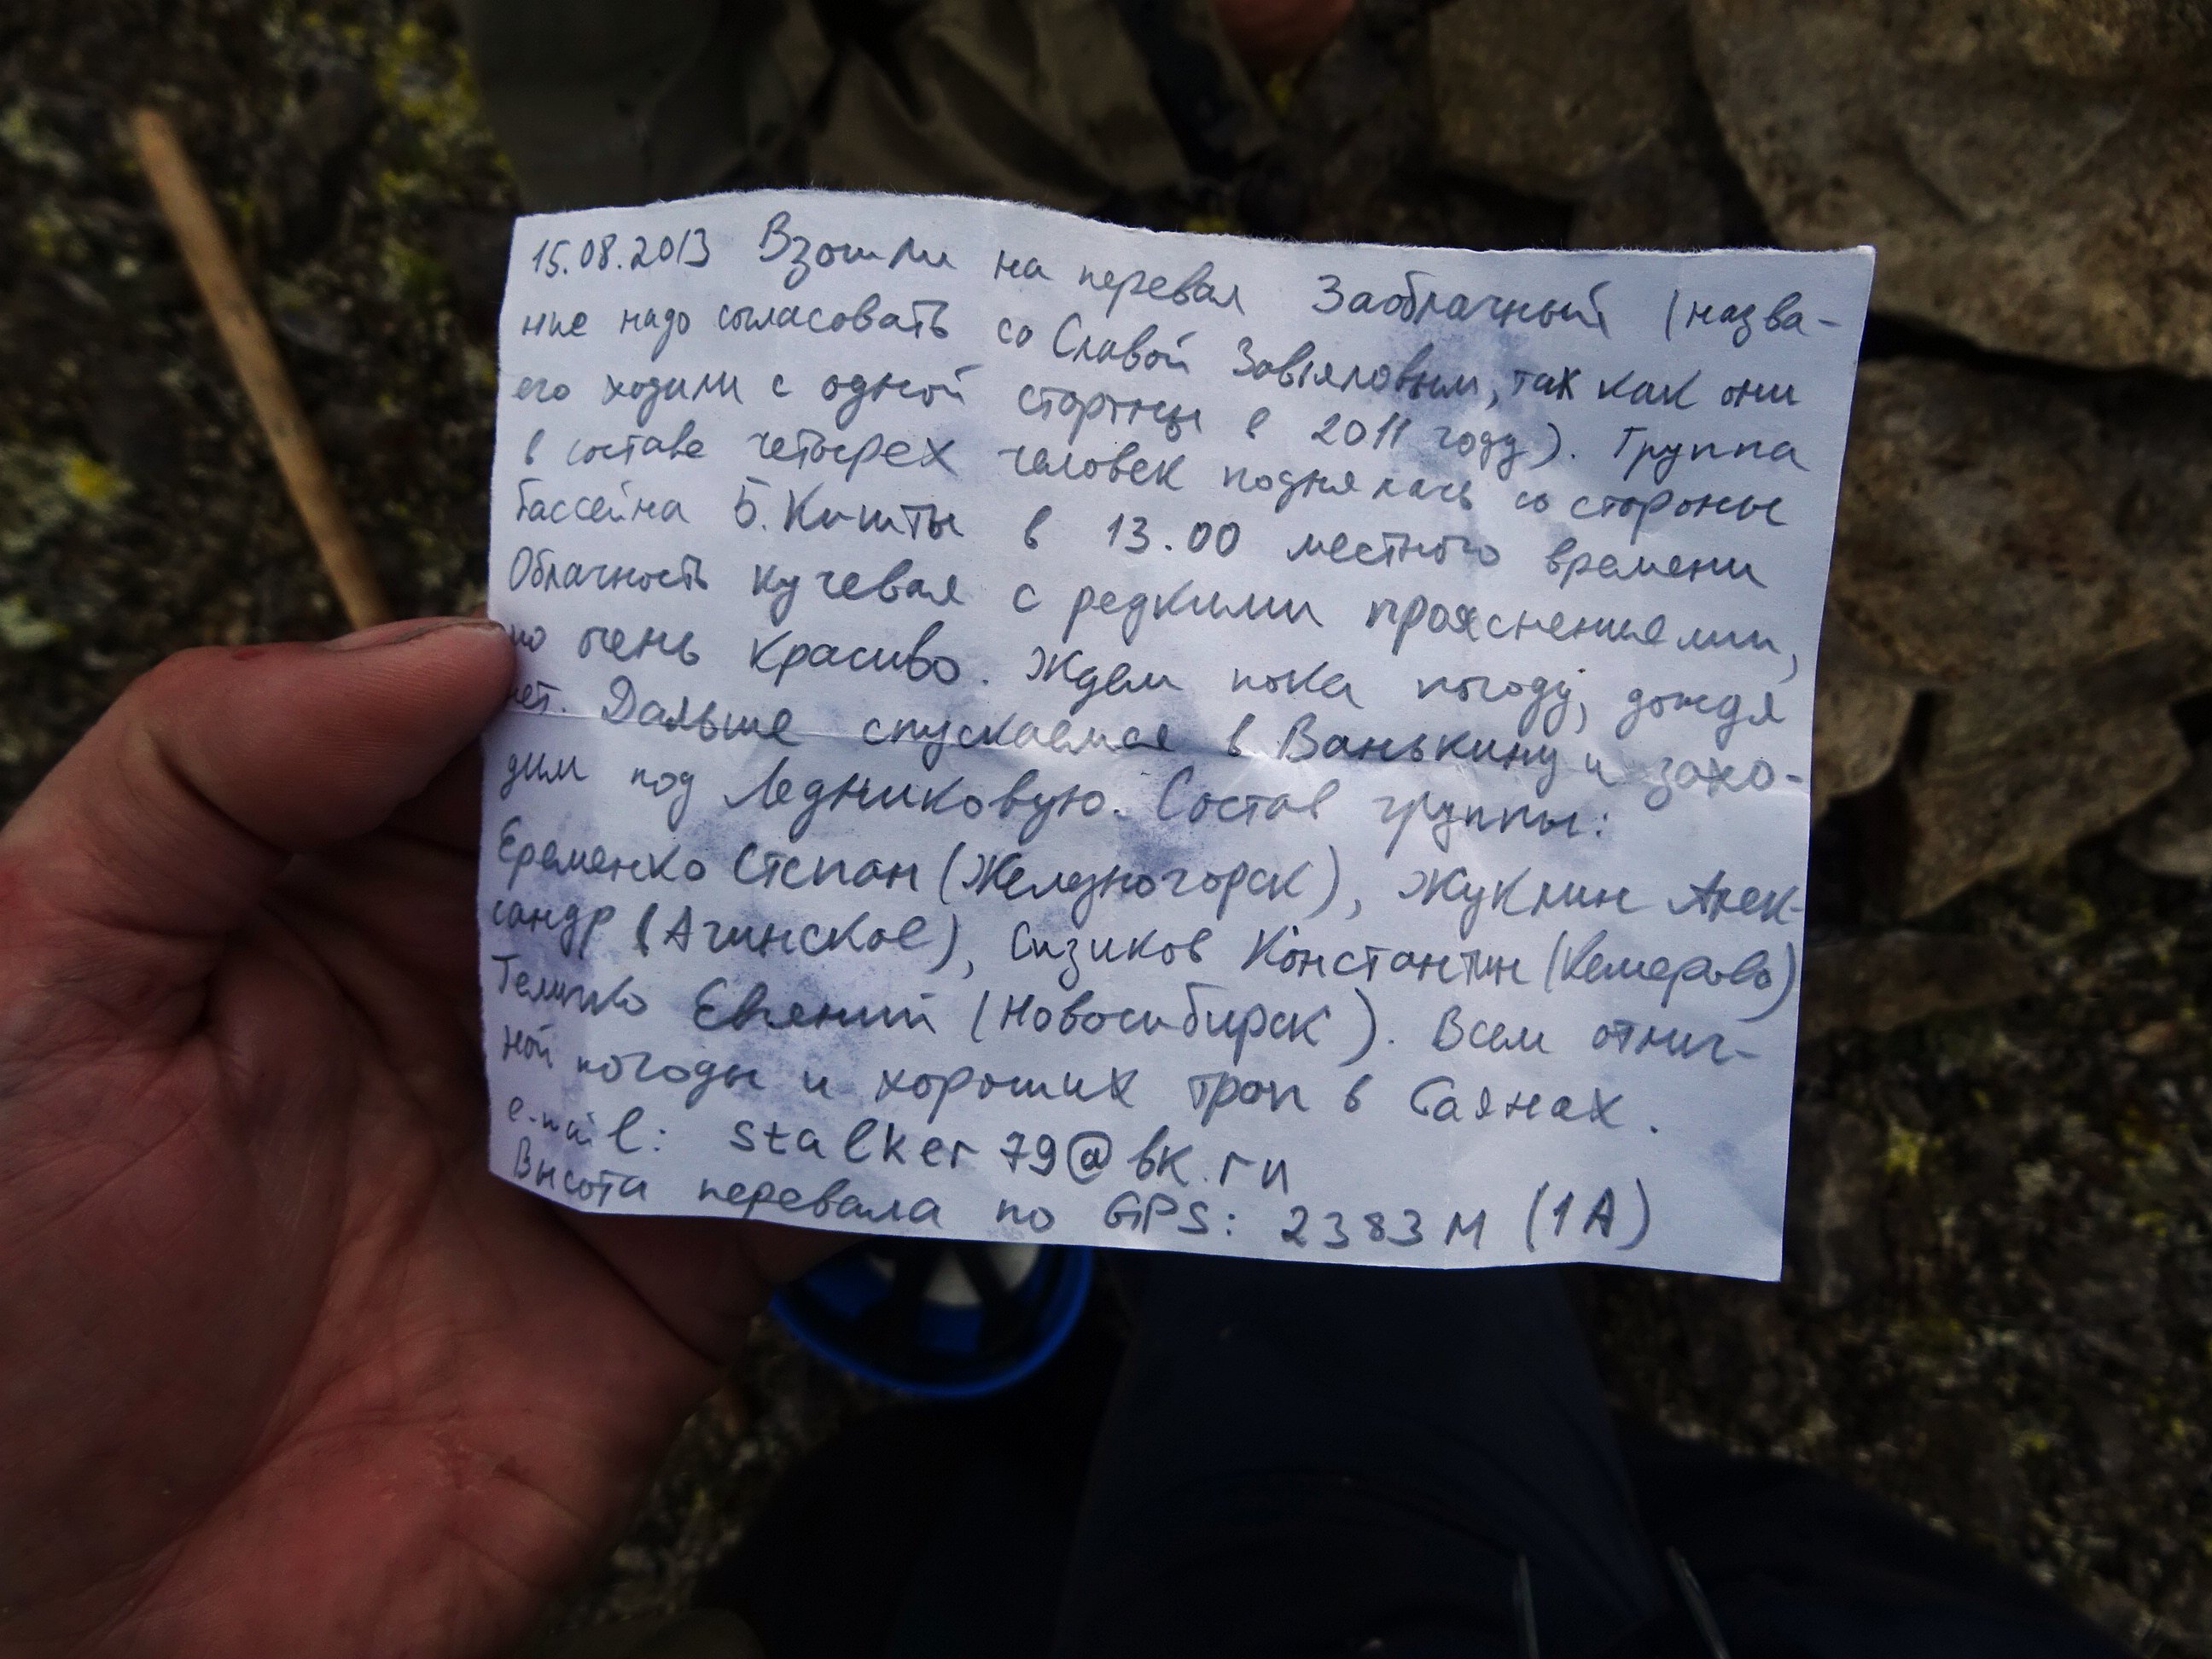 15.08.2013 Взошли на перевал Заоблачный (назва-
ние надо согласовать со Славой Завьяловым, так как они
его ходили с одной стороны в 2011 году). Группа
в составе четырех человек поднялась со стороны
бассейна Б. Кишты в 13.00 местного времени
Облачность кучевая с редкими прояснениями,
но очень красиво. Ждем пока погоду, дождя
нет. Дальше спускаемся в Ванькину и захо-
дим под Ледниковую. Состав группы:
Еременко Степан (Железногорск), Жуклин Алек-
сандр (Ачинское), Сизиков Константин (Кемерово)
Евгений (Новосибирск). Всем отлич-
ной погоды и хороших троп в Саянах.
e-mail: stalker79@bk.ru
Высота перевала по GPS: 2383 м (1А)